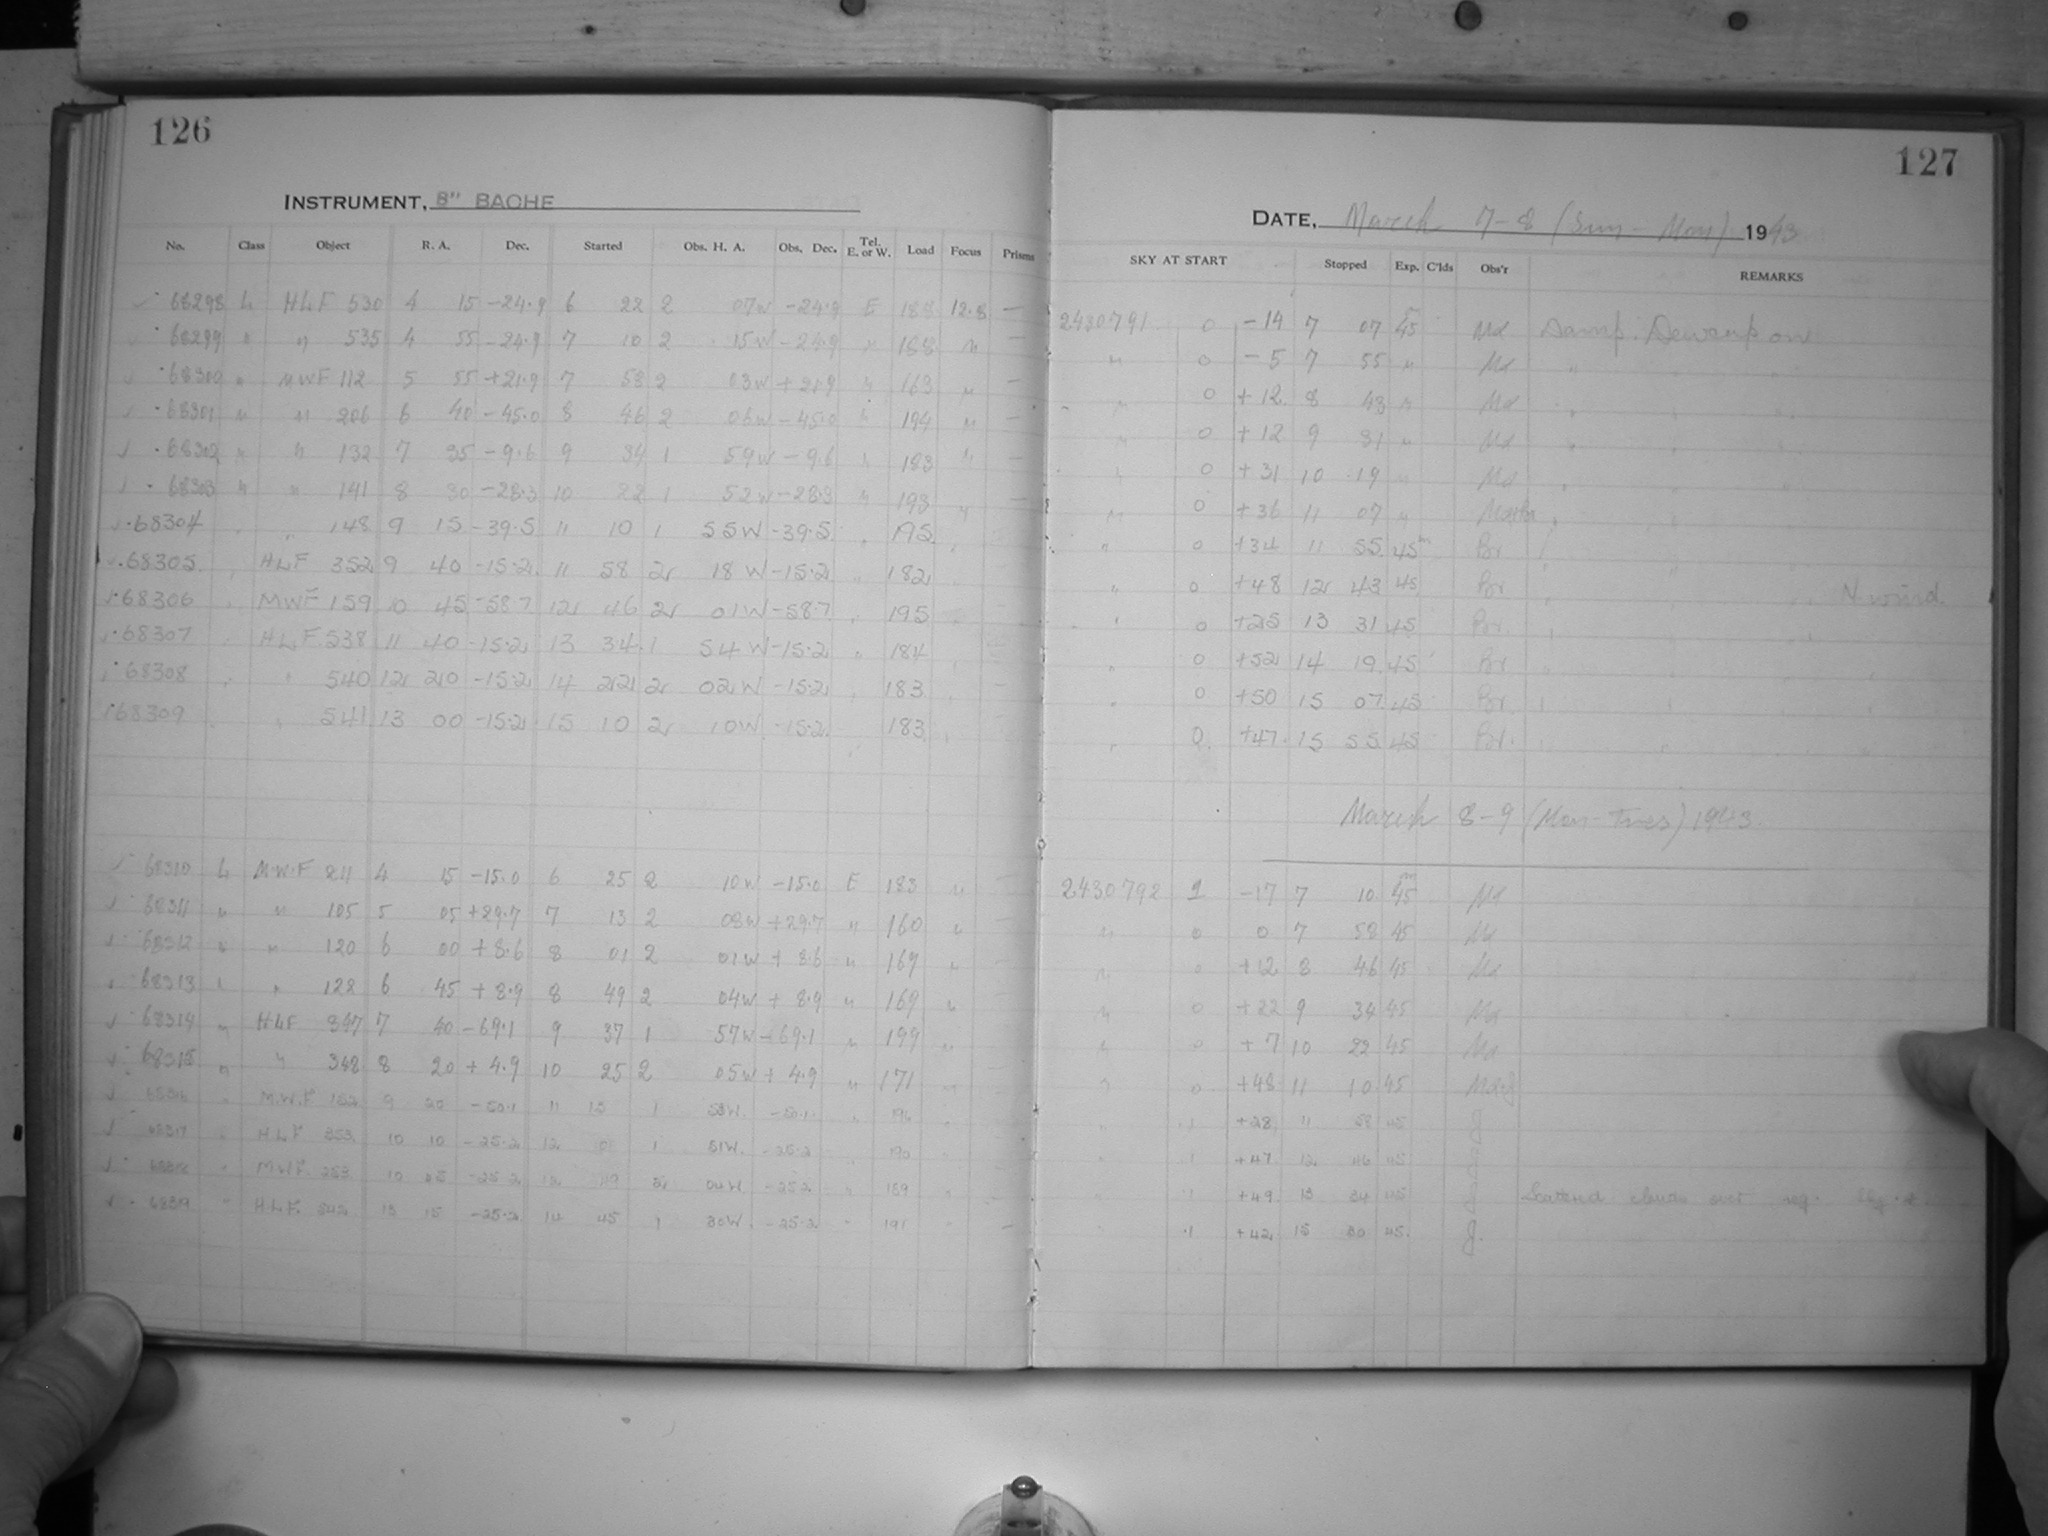 126
INSTRUMENT, 8" BACHE
No. Class Object R. A. Dec. Started Obs. H. A. Obs. Dec. Tel. E. or W. Load Focus Prisms
68298 L HLF 530 4 15 -24.9 6 22 2 07W -24.9 E 188 12.8 —
68299 " " 535 4 55 -24.9 7 10 2 15W -24.9 " 188 " —
68300 " MWF 112 5 55 +21.9 7 58 2 03W +21.9 " 163 " —
68301 " " 206 6 40 -45.0 8 46 2 06W -45.0 " 194 " —
68302 " " 132 7 35 -9.6 9 34 1 59W -9.6 " 183 " —
68303 " " 141 8 30 -28.3 10 22 1 52W -28.3 " 193 " —
68304 " " 148 9 15 -39.5 11 10 1 55W -39.5 " 195 "
68305 " HLF 352 9 40 -15.2 11 58 2 18W -15.2 " 182
68306 " MWF 159 10 45 -58.7 12 46 2 01W -58.7 195
68307 " HLF 538 11 40 -15.2 13 34 1 54W -15.2 " 184
68308 " " 540 12 20 -15.2 14 22 2 02W -15.2 183
68309 " 541 13 00 -15.2 15 10 2 10W -15.2 183
68310 L M.W.F 211 4 15 -15.0 6 25 2 10W -15.0 E 183 "
68311 " " 105 5 05 +29.7 7 13 2 08W +29.7 " 160 "
68312 " " 120 6 00 +8.6 8 01 2 01W +8.6 " 169 "
68313 " " 128 6 45 +8.9 8 49 2 04W +8.9 " 169 "
68314 " HLF 347 7 40 -69.1 9 37 1 57W -69.1 " 199 "
68315 " " 348 8 20 +4.9 10 25 2 05W +4.9 " 171 "
68316 " M.W.F 152 9 20 -50.1 11 13 1 53W. -50.1 " 196
68317 " HLF 353 10 10 -25.2 12 01 1 51W. -25.2 190
68318 " MWF. 253 10 45 -25.2 12 49 2 04W -25.2 " 189
68319 " HLF. 13 15 -25.2 14 45 1 30W. -25.2 " 191 —
127
DATE, March 7-8 (Sun - Mon) 1943
SKY AT START Stopped Exp. C'lds Obs'r REMARKS
2430791 0 -14 7 07 45m Md Damp. Dewcap on
" 0 -5 7 55 " Md "
" 0 +12 8 43 " Md "
" 0 +12 9 31 " Md "
" 0 +31 10 19 " Md "
" 0 +36 11 07 "
" 0 +34 11 55 45m Br
" 0 +48 12 43 45 Br N wind.
" 0 +25 13 31 45 Br.
" 0 +52 14 19 45 Br
" 0 +50 15 07 45 Br.
" 0 +47 15 55 45 Br.
March 8-9 (Mon-Tues) 1943
2430792 1 -17 7 10 45m Md
" 0 0 7 58 45 Md
" 0 +12 8 46 45 Md
" 0 +22 9 34 45 Md
" 0 +7 10 22 45 Md
" 0 +48 11 10 45
" .1 +28 11 58 45 J
" .1 +47 12 46 45
" .1 +49 13 34 45 Scattered clouds over
" .1 +42 15 30 45. J.